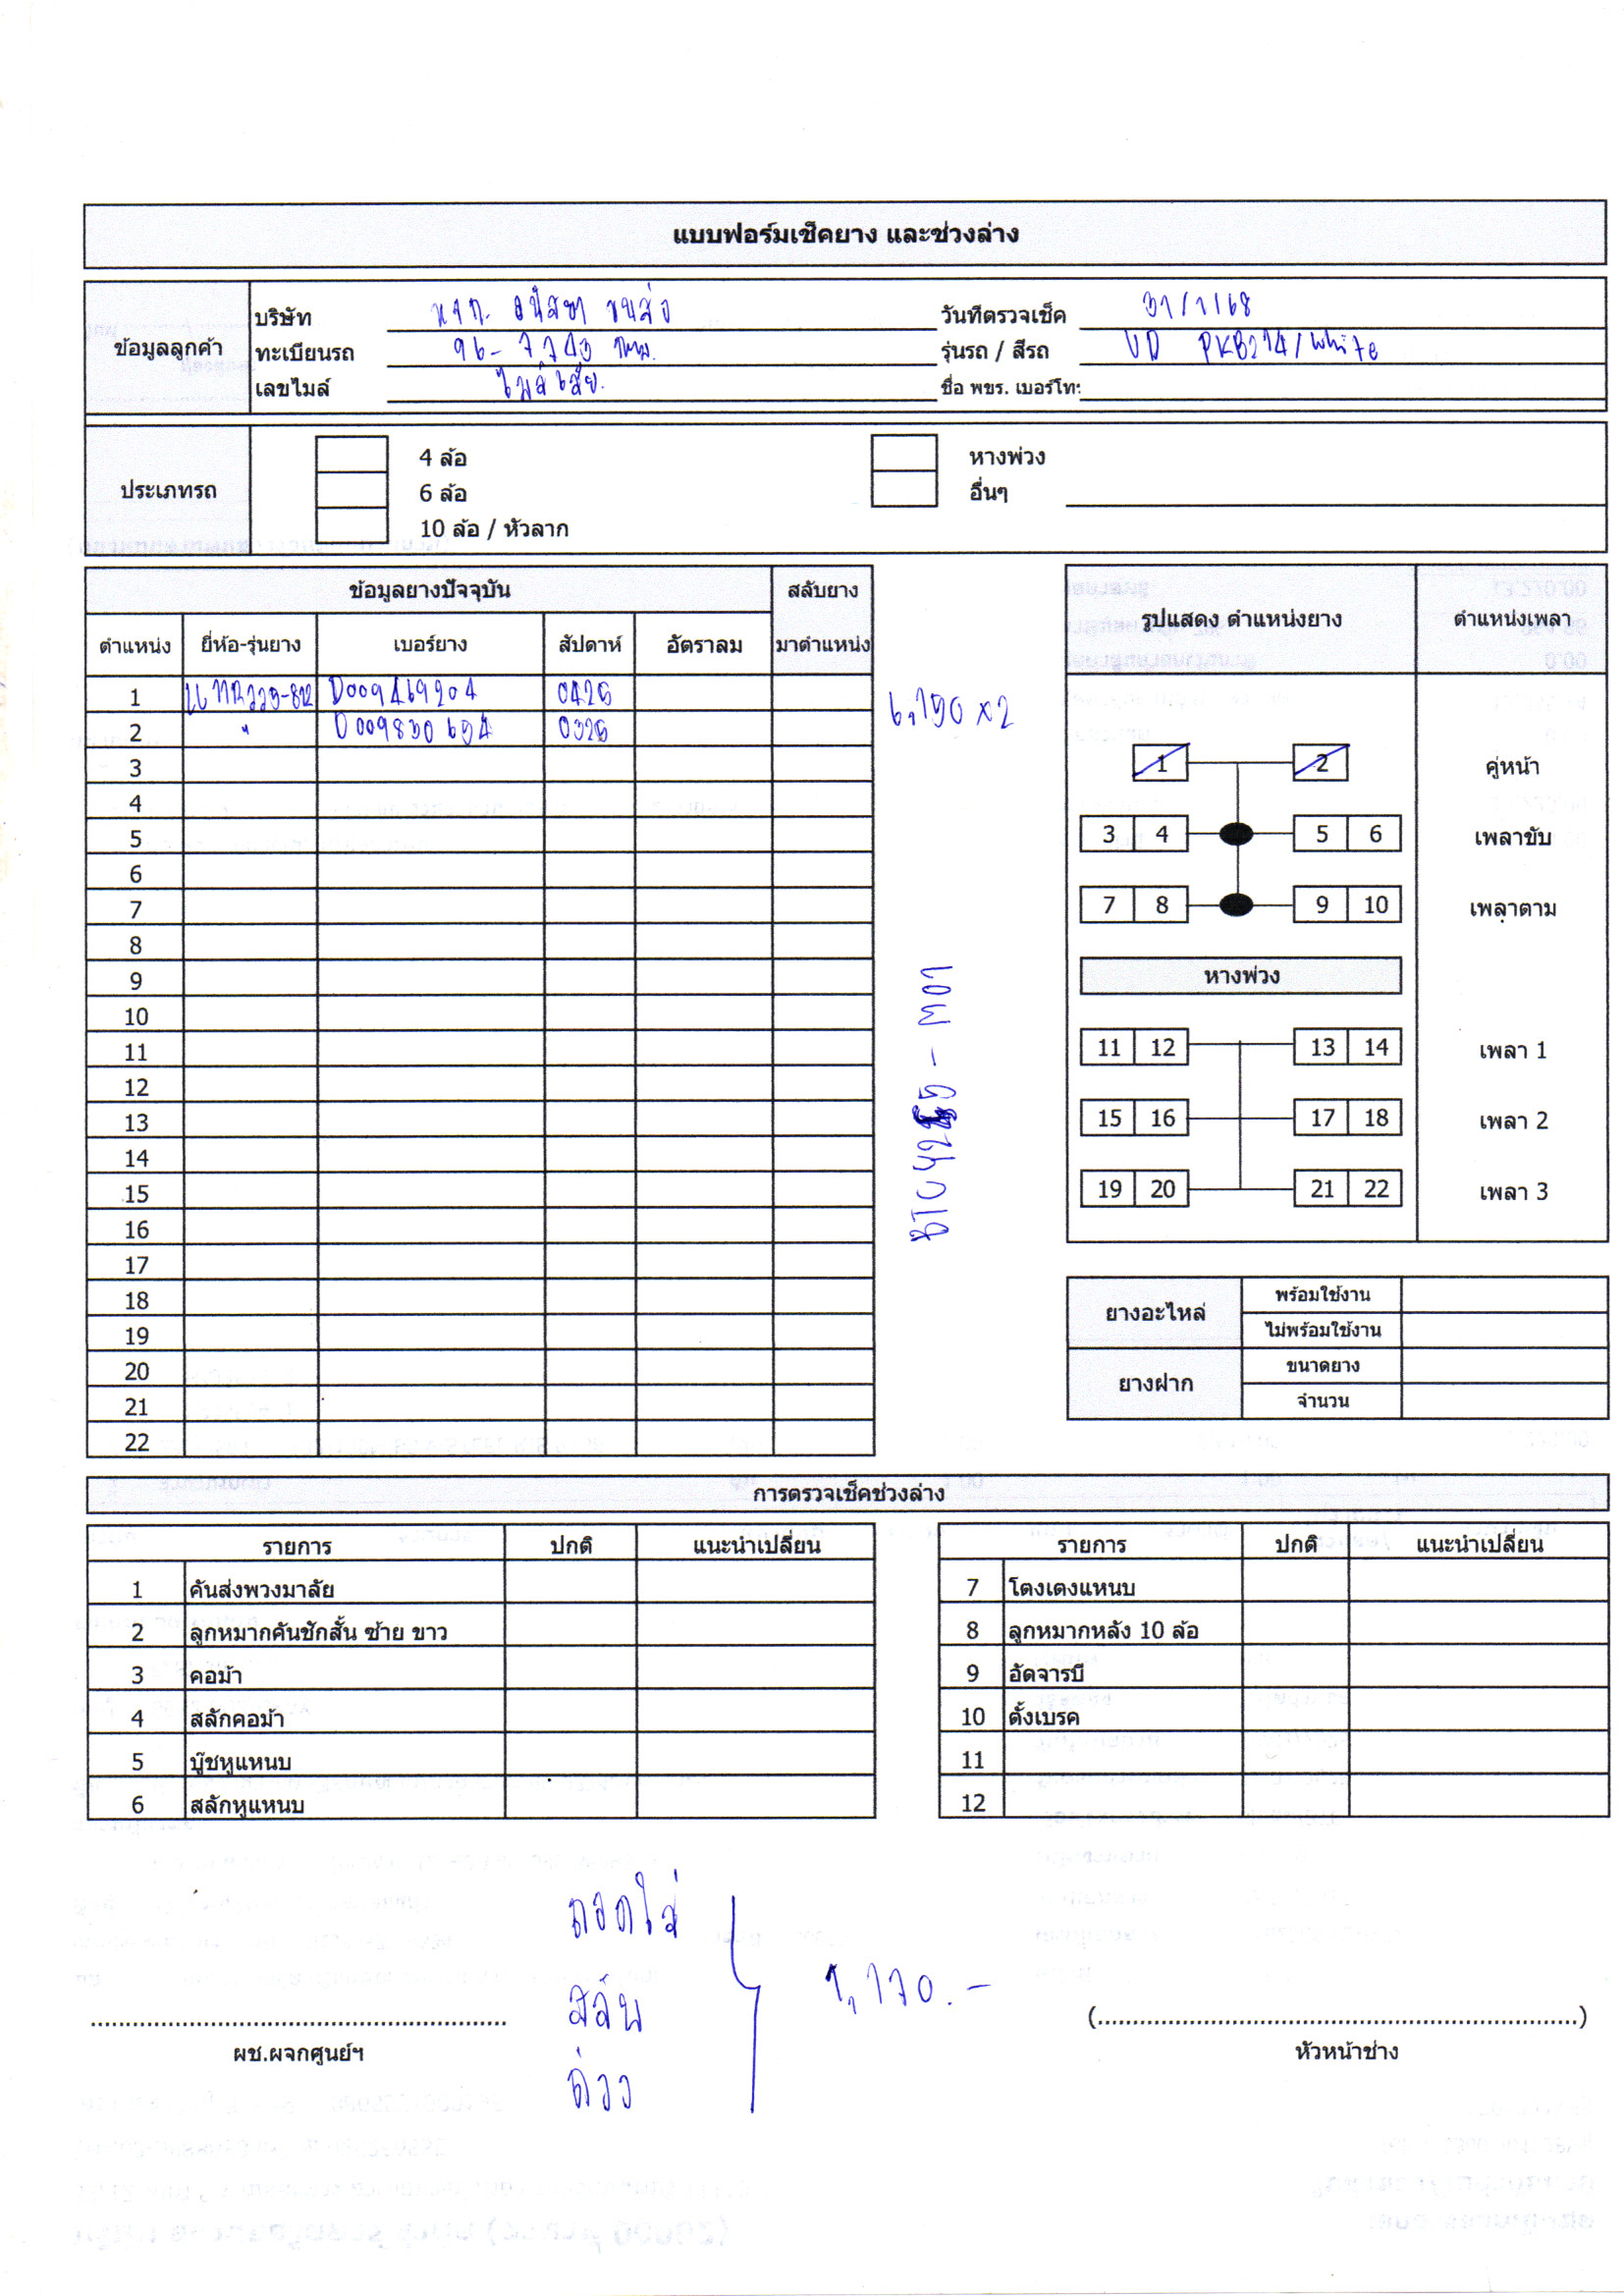 แบบฟอร์มเช็คยาง และช่วงล่าง
ข้อมูลลูกค้า
บริษัท หจก. อนิสชา ขนส่ง วันที่ตรวจเช็ค 31/1/68
ทะเบียนรถ 96-7743 กทม. รุ่นรถ / สีรถ UD PKB214/white
เลขไมล์ ไมล์เสีย. ชื่อ พขร. เบอร์โทร
ประเภทรถ
4 ล้อ หางพ่วง
6 ล้อ อื่นๆ
10 ล้อ / หัวลาก
ข้อมูลยางปัจจุบัน สลับยาง
ตำแหน่ง ยี่ห้อ-รุ่นยาง เบอร์ยาง สัปดาห์ อัตราลม มาตำแหน่ง
1 D009469204 0425
2 " D009830654 0325
3
4
5
6
7
8
9
10
11
12
13
14
15
16
17
18
19
20
21
22
6,150 x2
- M01
รูปแสดง ตำแหน่งยาง ตำแหน่งเพลา
1 2 คู่หน้า
3 4 5 6 เพลาขับ
7 8 9 10 เพลาตาม
หางพ่วง
11 12 13 14 เพลา 1
15 16 17 18 เพลา 2
19 20 21 22 เพลา 3
ยางอะไหล่ พร้อมใช้งาน
ไม่พร้อมใช้งาน
ยางฝาก ขนาดยาง
จำนวน
การตรวจเช็คช่วงล่าง
รายการ ปกติ แนะนำเปลี่ยน
1 คันส่งพวงมาลัย
2 ลูกหมากคันชักสั้น ซ้าย ขาว
3 คอม้า
4 สลักคอม้า
5 บู๊ชหูแหนบ
6 สลักหูแหนบ
รายการ ปกติ แนะนำเปลี่ยน
7 โตงเตงแหนบ
8 ลูกหมากหลัง 10 ล้อ
9 อัดจารบี
10 ตั้งเบรค
11
12
ถอดใส่
สลับ
ถ่วง
1,170.-
ผช.ผจกศูนย์ฯ
(..........)
หัวหน้าช่าง